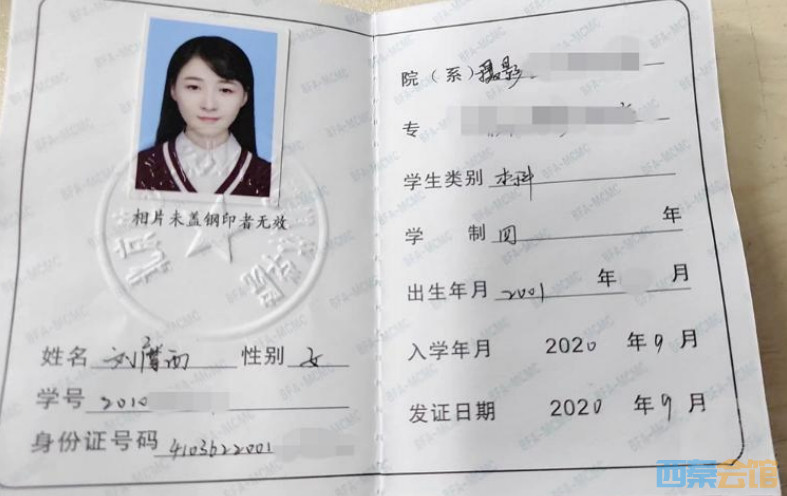 相片未盖钢印者无效
姓名 刘 性别 女
学号 2010
身份证号码 4103622001
院（系）摄影
专
学生类别 本科
学 制 四 年
出生年月 2001 年 月
入学年月 2020 年 9 月
发证日期 2020 年 9 月
BFA-MCMC
西秦会馆